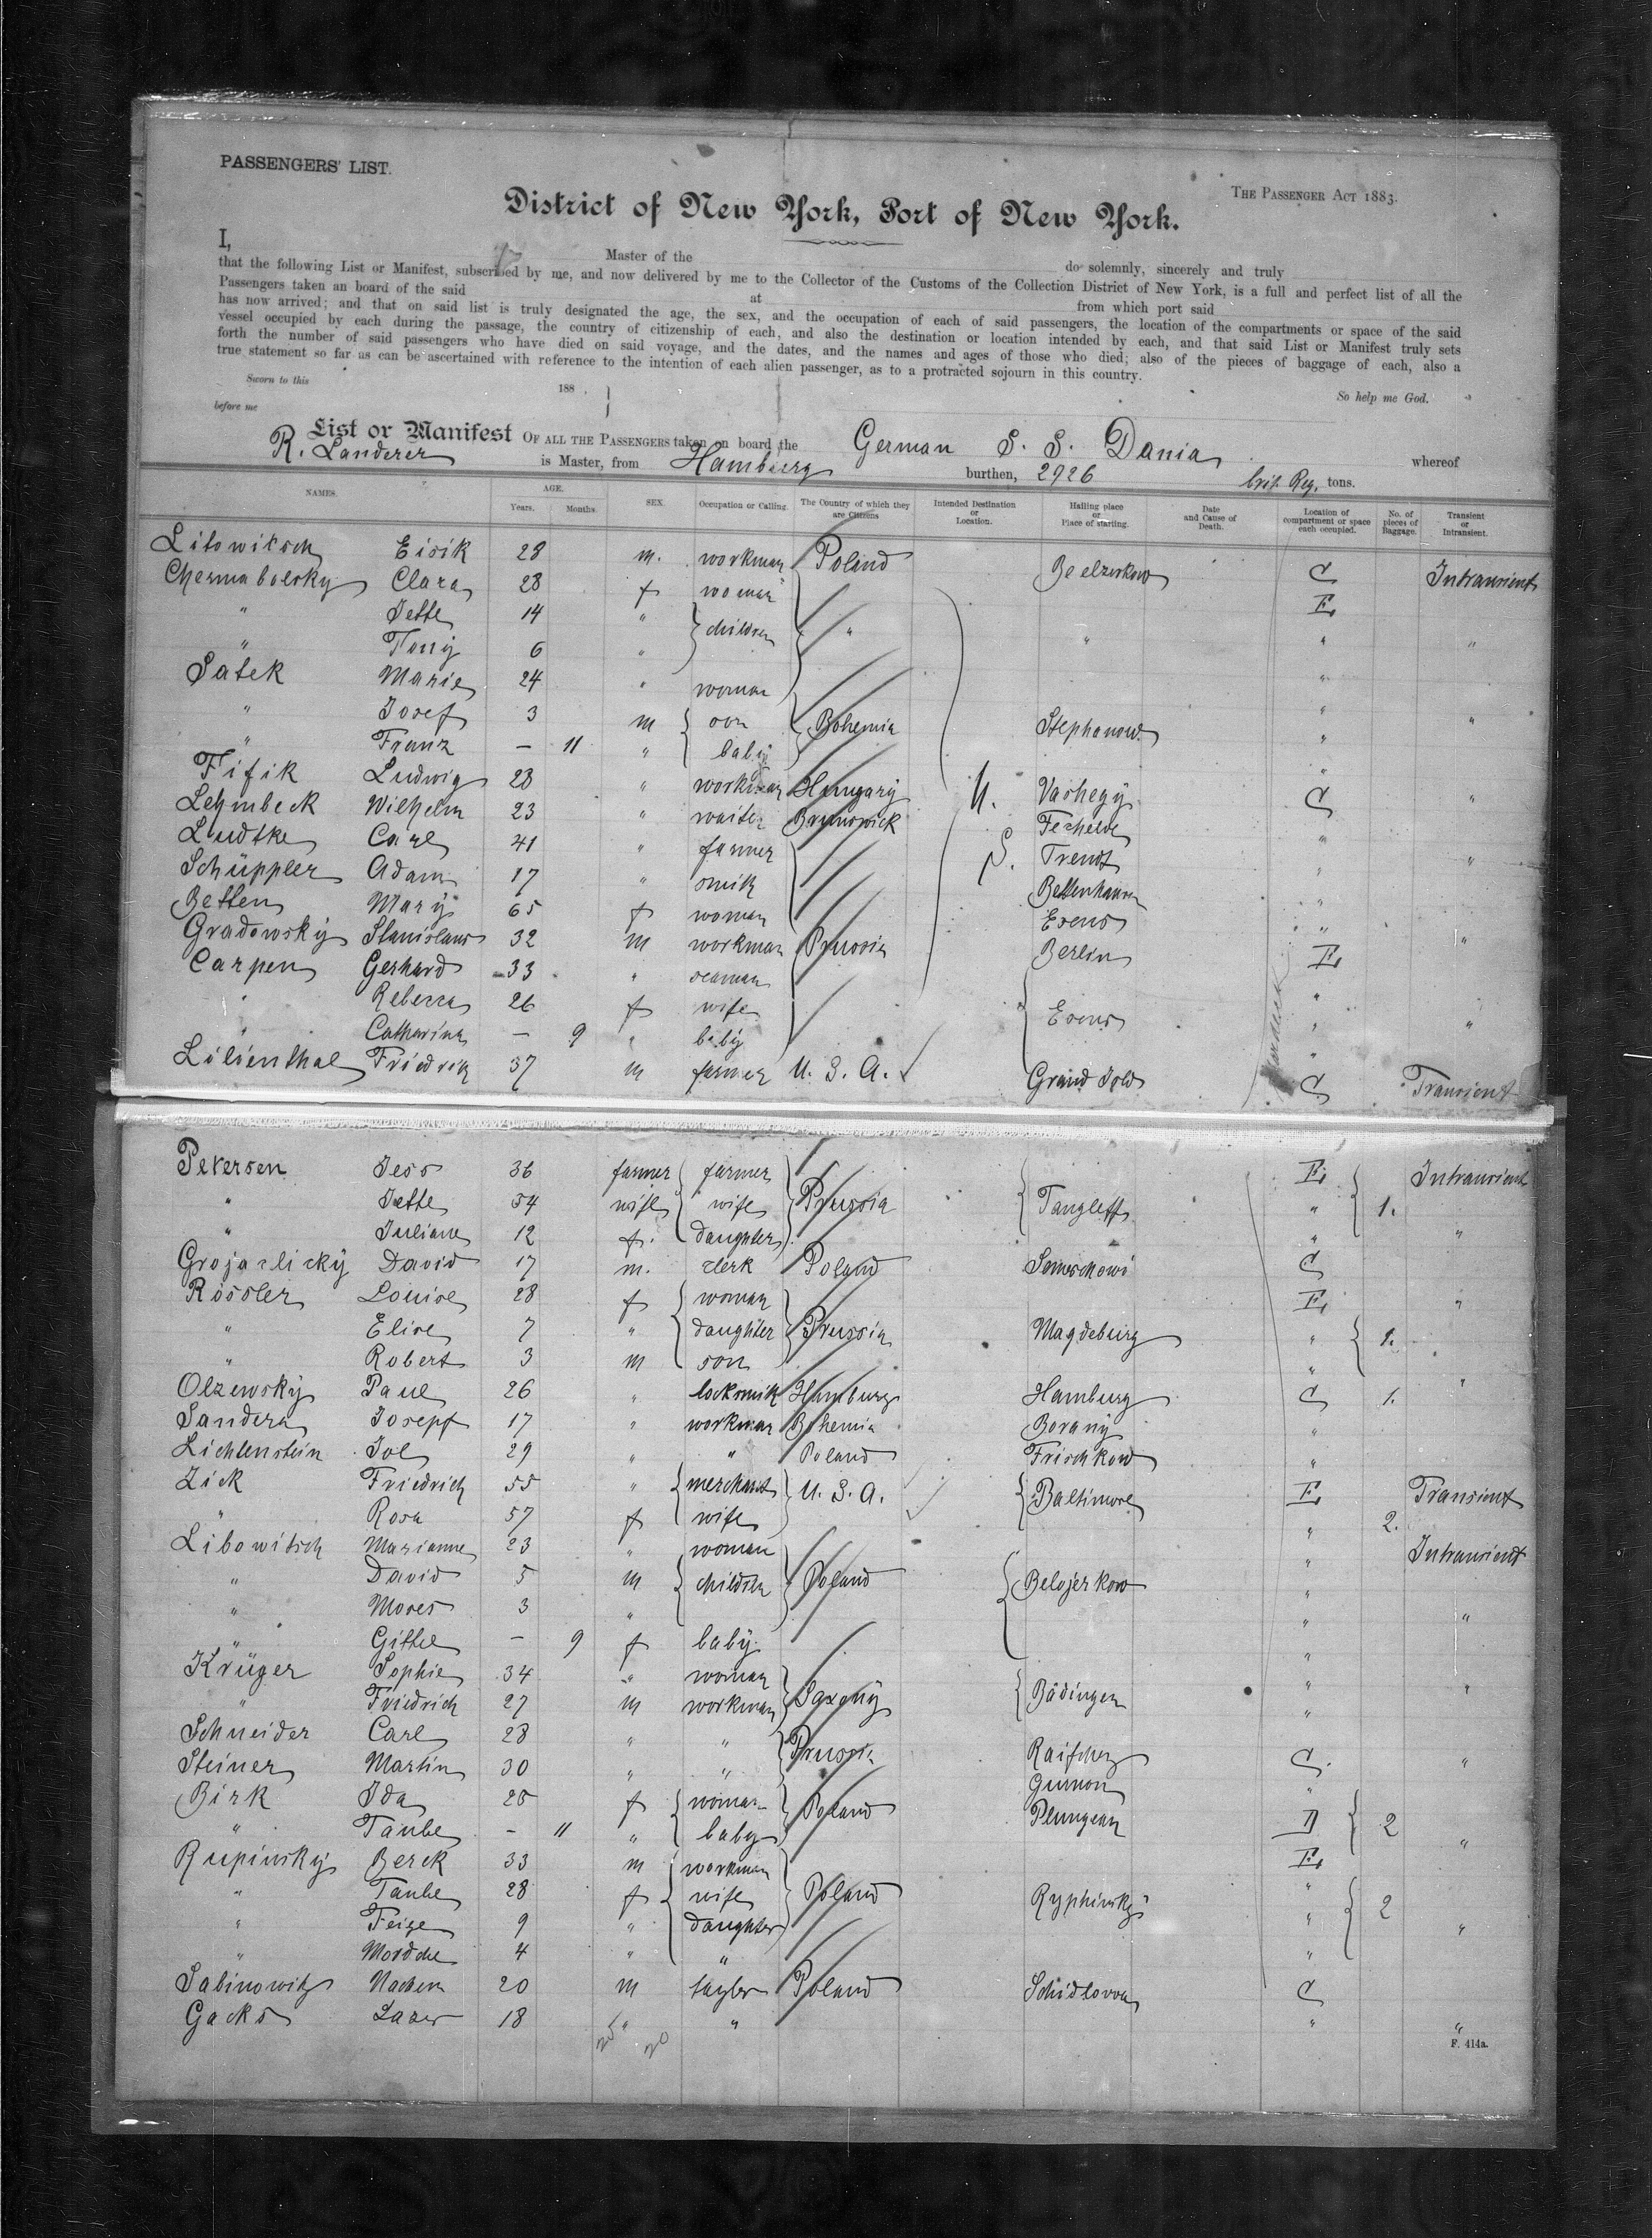 PASSENGERS' LIST.
THE PASSENGER ACT 1883.
District of New York, Port of New York.
I, Master of the do solemnly, sincerely and truly
that the following List or Manifest, subscribed by me, and now delivered by me to the Collector of the Customs of the Collection District of New York, is a full and perfect list of all the
Passengers taken an board of the said at from which port said
has now arrived; and that on said list is truly designated the age, the sex, and the occupation of each of said passengers, the location of the compartments or space of the said
vessel occupied by each during the passage, the country of citizenship of each, and also the destination or location intended by each, and that said List or Manifest truly sets
forth the number of said passengers who have died on said voyage, and the dates, and the names and ages of those who died; also of the pieces of baggage of each, also a
true statement so far as can be ascertained with reference to the intention of each alien passenger, as to a protracted sojourn in this country.
Sworn to this 188 . So help me God.
before me
List or Manifest OF ALL THE PASSENGERS taken on board the German S. S. Dania whereof
R. Landerer is Master, from Hamburg burthen, 2926 brit. Reg. tons.
NAMES. AGE. Years. Months. SEX. Occupation or Calling. The Country of which they are Citizens Intended Destination or Location. Hailing place or Place of starting. Date and Cause of Death. Location of compartment or space each occupied. No. of pieces of Baggage. Transient or Intransient.
Litowitsch Eisik 28 m. workman Poland Beelzerkow C Intransient
Clara 28 f woman E
" Jette 14 " children " " " "
" Tony 6 "
Satek Marie 24 " woman "
" Josef 3 m son Bohemia Stephanow " "
" Franz – 11 " baby "
Fifik Ludwig 28 " workman Hungary N. Vashegy C "
Lehmbeck Wilhelm 23 " waiter Brunswick Fechelde "
Ludtke Carl 41 " farmer S. Trendt " "
Schüppler Adam 17 " smith Bettenhausen "
Betten Mary 65 f woman Esens "
Gradowsky Stanislaus 32 m workman Prussia Berlin E "
Carpen Gerhard 33 " seaman "
" Rebecca 26 f wife Esens " "
" Catharina – 9 " baby "
Lilienthal Friedrik 37 m farmer U. S. A. Grand Isld C Transient
Petersen Jess 36 farmer farmer E Intransient
" Jette 34 wife wife Prussia Tangleff " 1.
" Juliane 12 f. daughter " "
David 17 m. clerk Poland C
Rössler Louise 28 f woman E "
" Elise 7 " daughter Prussia Magdeburg " 1.
" Robert 3 m son "
Olzewsky Paul 26 " locksmith Hamburg Hamburg C 1. "
Sandera Josepf 17 " workman Bohemia Borany "
Lichtenstein Joel 29 " " Poland Frischkow "
Zick Friedrich 55 " merchant U. S. A. Baltimore E Transient
" Rosa 57 f wife " 2.
Libowitsch Marianne 23 " woman " Intransient
" David 5 m children Poland Belojerkow "
" Moses 3 " " "
" Gittel – 9 f baby "
Krüger Sophie 34 " woman Saxony Büdingen " "
" Friedrich 27 m workman "
Schneider Carl 28 " " Prussia C "
Steiner Martin 30 " " Gumon "
Birk Ida 25 f woman Poland Plungean D 2
" Taube – 11 " baby "
Rupinsky Berck 33 m workman E
" Taube 28 f wife Poland Ryphinsky " 2
" Feige 9 " daughter " "
" Mordche 4 " " "
Sabinowitz Nachem 20 m taylor Poland Schidlowa C
Gacks Laser 18 " " " "
25 20
F. 414a.